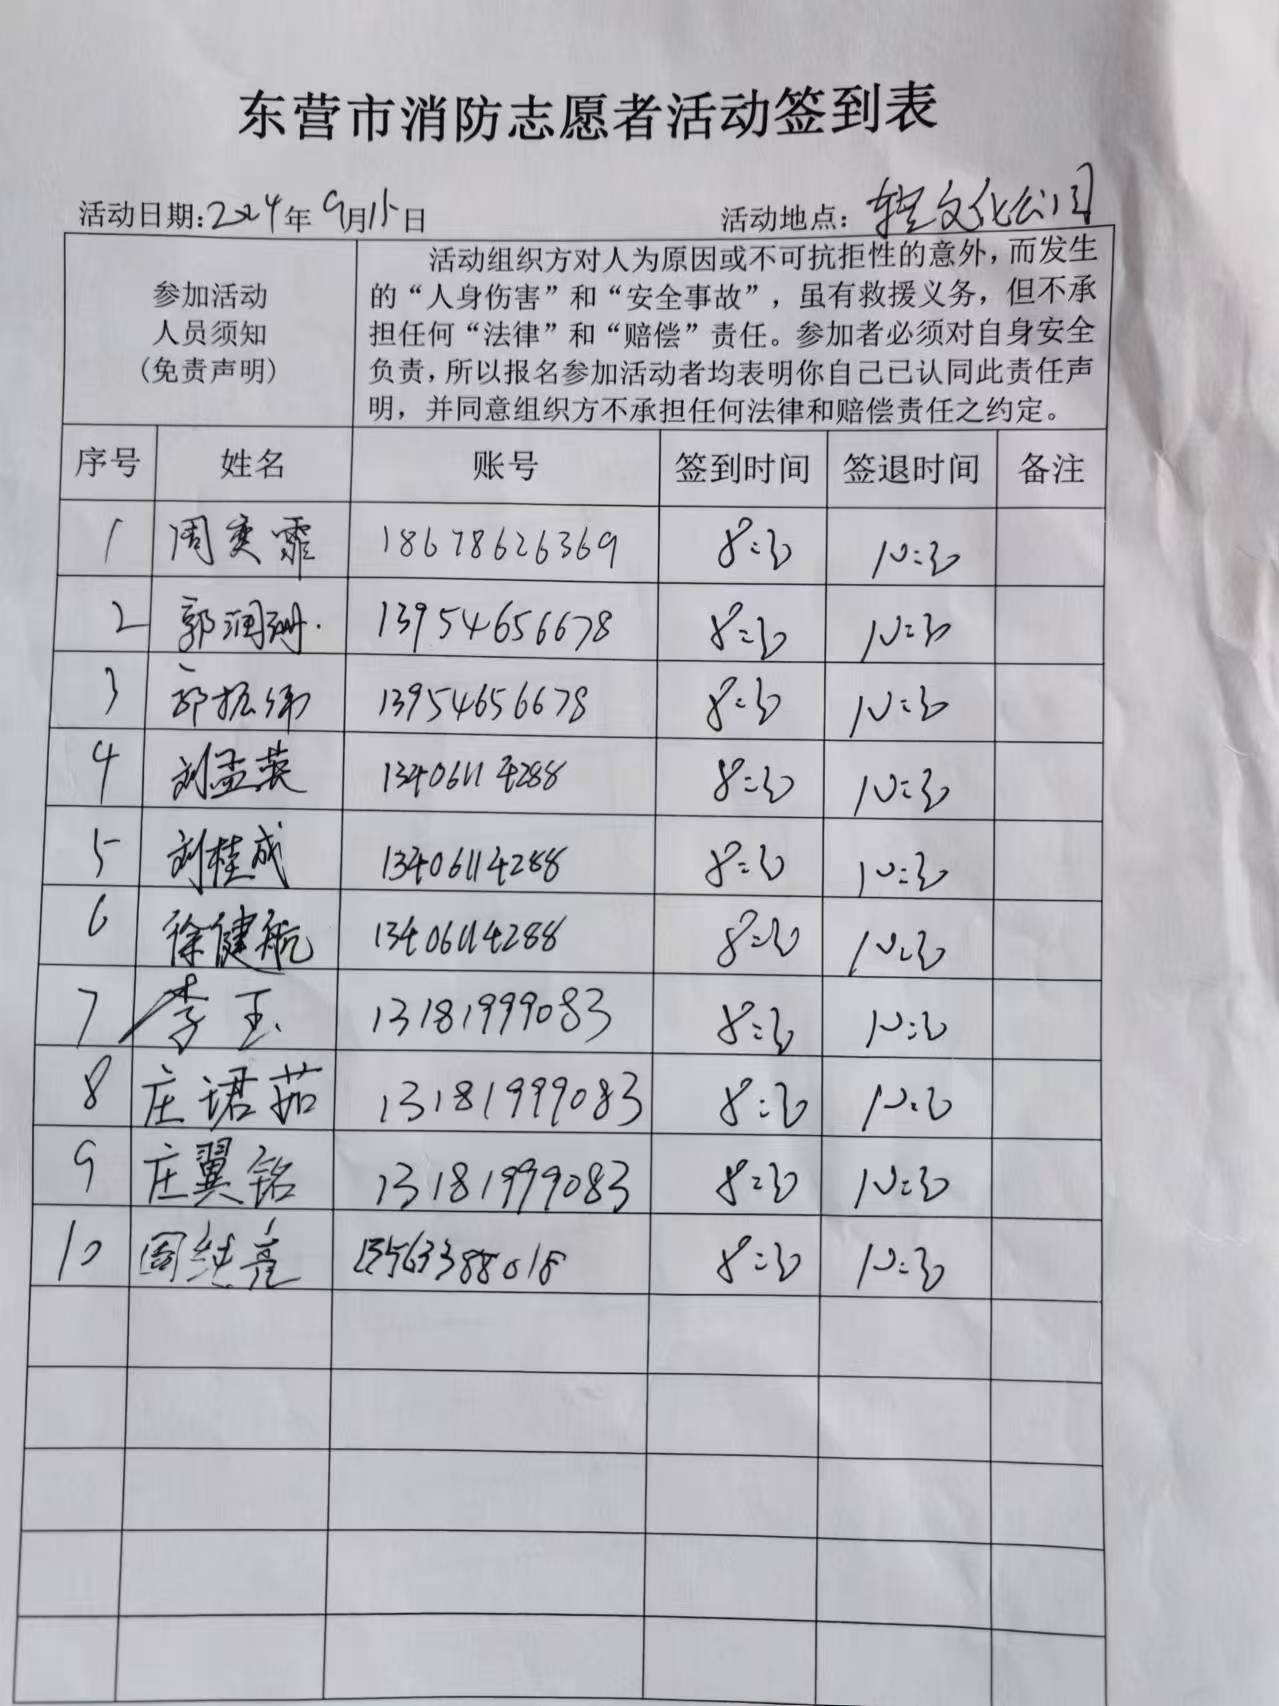 东营市消防志愿者活动签到表
活动日期:2024年9月15日 活动地点: 文化公司
参加活动
人员须知
(免责声明)
活动组织方对人为原因或不可抗拒性的意外,而发生
的“人身伤害”和“安全事故”,虽有救援义务,但不承
担任何“法律”和“赔偿”责任。参加者必须对自身安全
负责,所以报名参加活动者均表明你自己已认同此责任声
明,并同意组织方不承担任何法律和赔偿责任之约定。
序号 姓名 账号 签到时间 签退时间 备注
1 周奕霏 18678626369 8:30 10:30
2 郭润珊 13954656678 8:30 10:30
3 郭振伟 13954656678 8:30 10:30
4 刘孟英 13406114288 8:30 10:30
5 刘桂成 13406114288 8:30 10:30
6 徐健航 13406114288 8:30 10:30
7 李玉 13181999083 8:30 10:30
8 庄珺茹 13181999083 8:30 10:30
9 庄翼铭 13181999083 8:30 10:30
10 周纯亮 13563388018 8:30 10:30